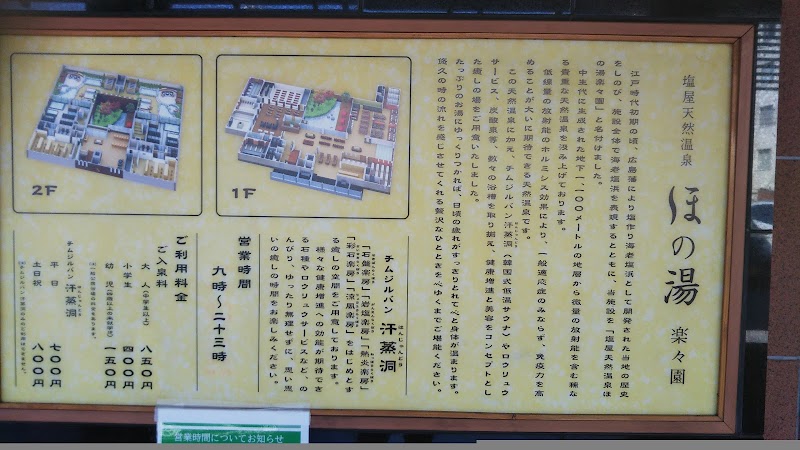 塩屋天然温泉
ほの湯 楽々園
江戸時代初期の頃、広島藩により塩作り海老塩浜として開発された当地の歴史
をしのび、施設全体で海老塩浜を表現するとともに、当施設を「塩屋天然温泉ほ
の湯楽々園」と名付けました。
中生代に生成された地下一、一〇〇メートルの地層から微量の放射能を含む稀な
る貴重な天然温泉を汲み上げております。
低線量の放射能のホルミシス効果により、一般適応症のみならず、免疫力を高
めることが大いに期待できる天然温泉です。
この天然温泉に加え、チムジルバン汗蒸洞(韓国式低温サウナ)やロウリュウ
サービス、炭酸泉等、数々の浴槽を取り揃え、健康増進と美容をコンセプトとし
た癒しの場をご用意いたしました。
たっぷりのお湯にゆっくりつかれば、日頃の疲れがすっきりとれて心と身体が温まります。
悠久の時の流れを感じさせてくれる贅沢なひとときを心ゆくまでご堪能ください。
1F
2F
チムジルバン 汗蒸洞
はんじゅんどう
「石盤楽房」「岩塩楽房」「熱炎楽房」
「彩石楽房」「涼風楽房」をはじめとす
る癒しの空間をご用意しております。
様々な健康増進への効能が期待でき
る石種やロウリュウサービスなど、の
んびり、ゆったり無理せずに、思い思
いの癒しの時間をお楽しみください。
営業時間
九時〜二十三時
ご利用料金
ご入泉料
大人(中学生以上) 八五〇円
小学生 四〇〇円
幼児 一五〇円
チムジルバン 汗蒸洞
平日 七〇〇円
土日祝 八〇〇円
営業時間についてお知らせ